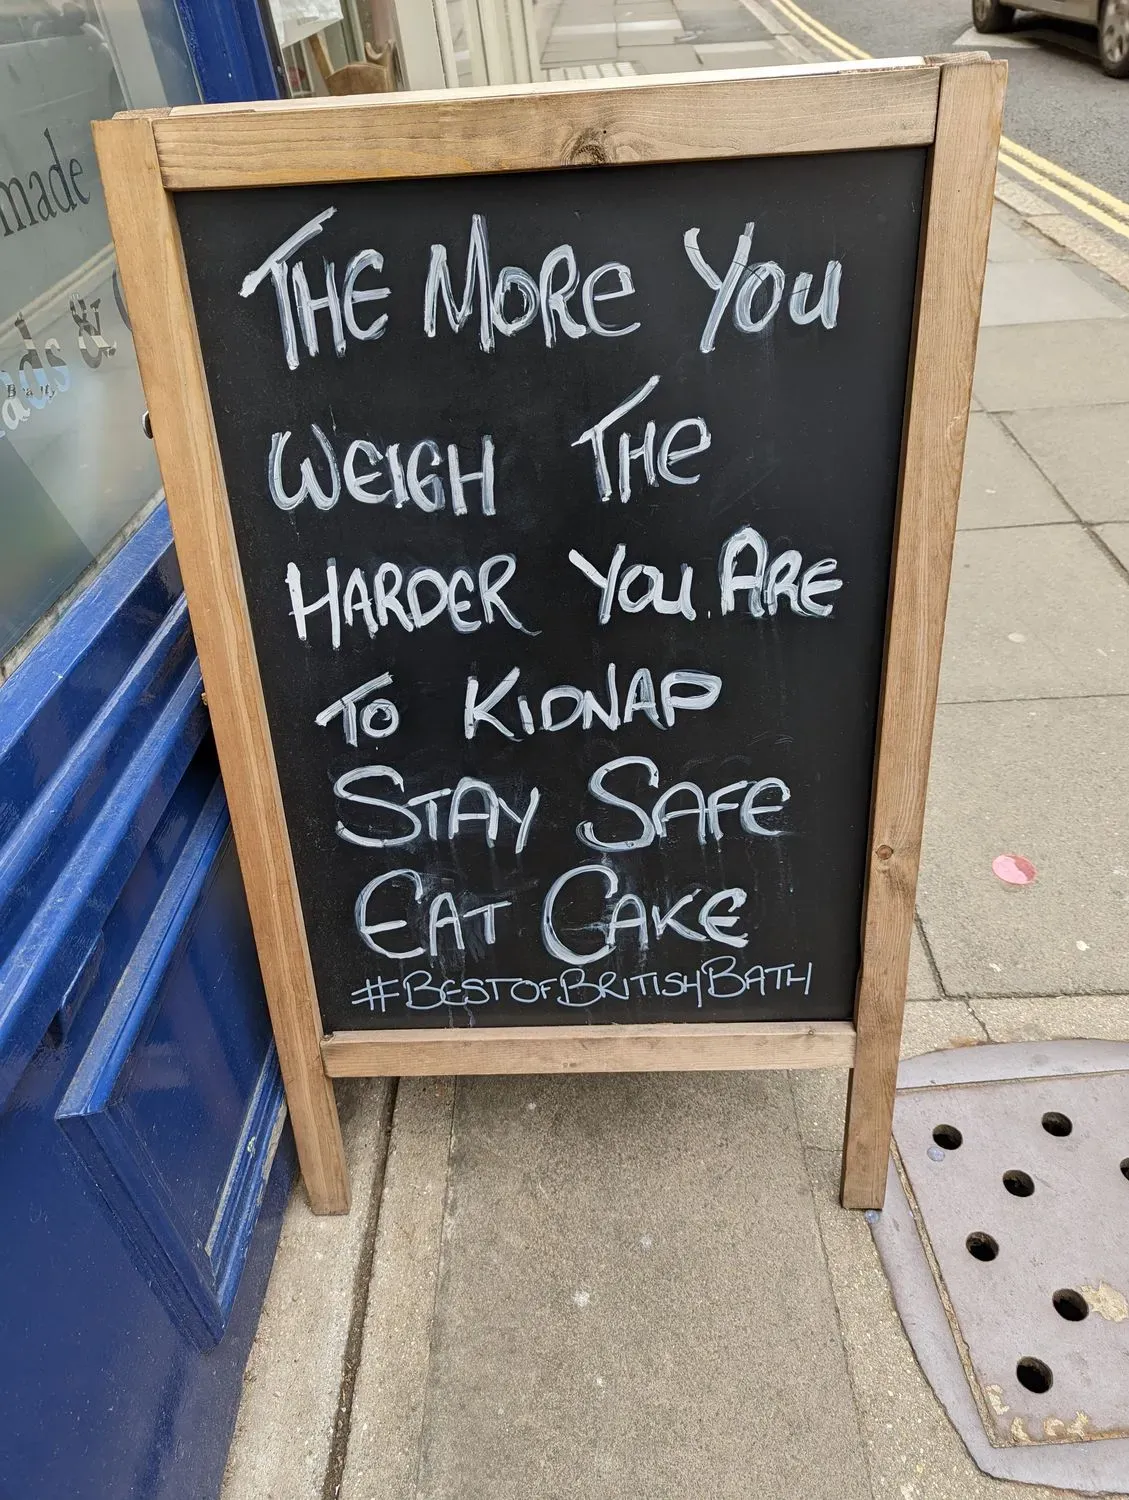 THE MORE YOU
WEIGH THE
HARDER YOU ARE
TO KIDNAP
STAY SAFE
EAT CAKE
#BESTOFBRITISHBATH
made
&
Beauty